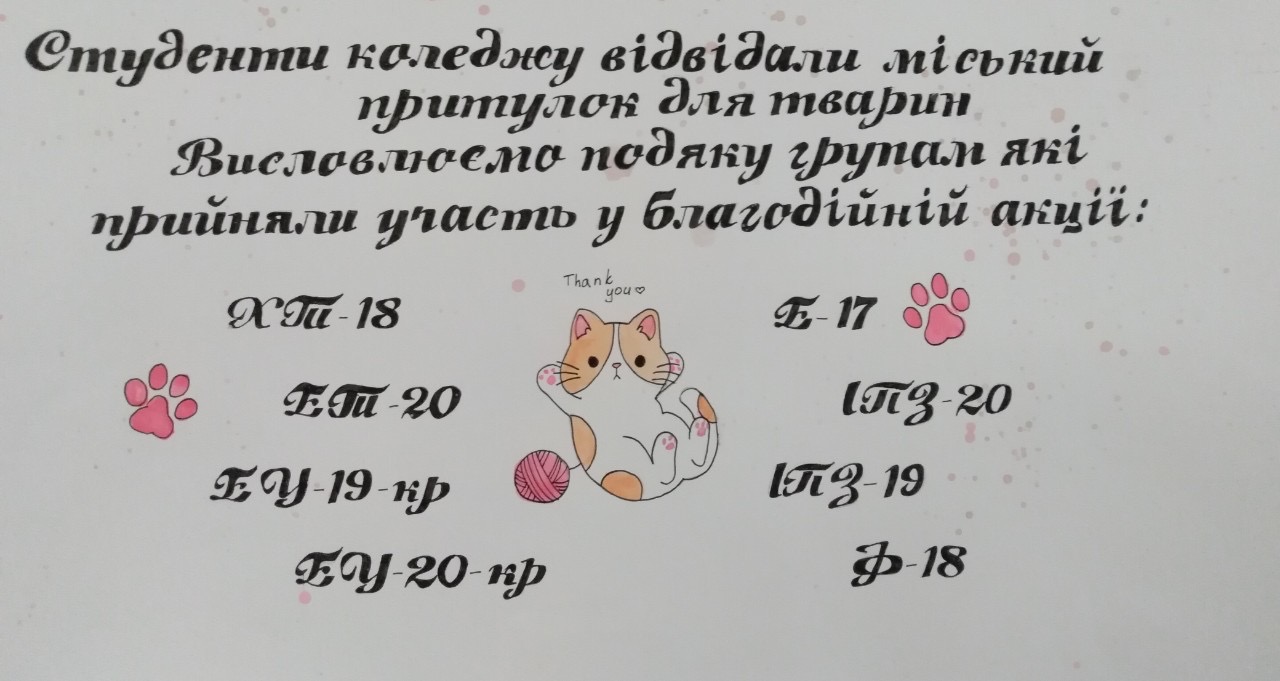 Студенти коледжу відвідали міський
притулок для тварин
Висловлюємо подяку групам які
прийняли участь у благодійній акції:
Thank
you♡
ХТ-18
Е-17
ЕТ-20
ІПЗ-20
ЕУ-19-кр
ІПЗ-19
ЕУ-20-кр
Ф-18